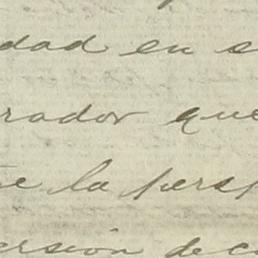 dad en s
rador que
e la persp
ersión de c